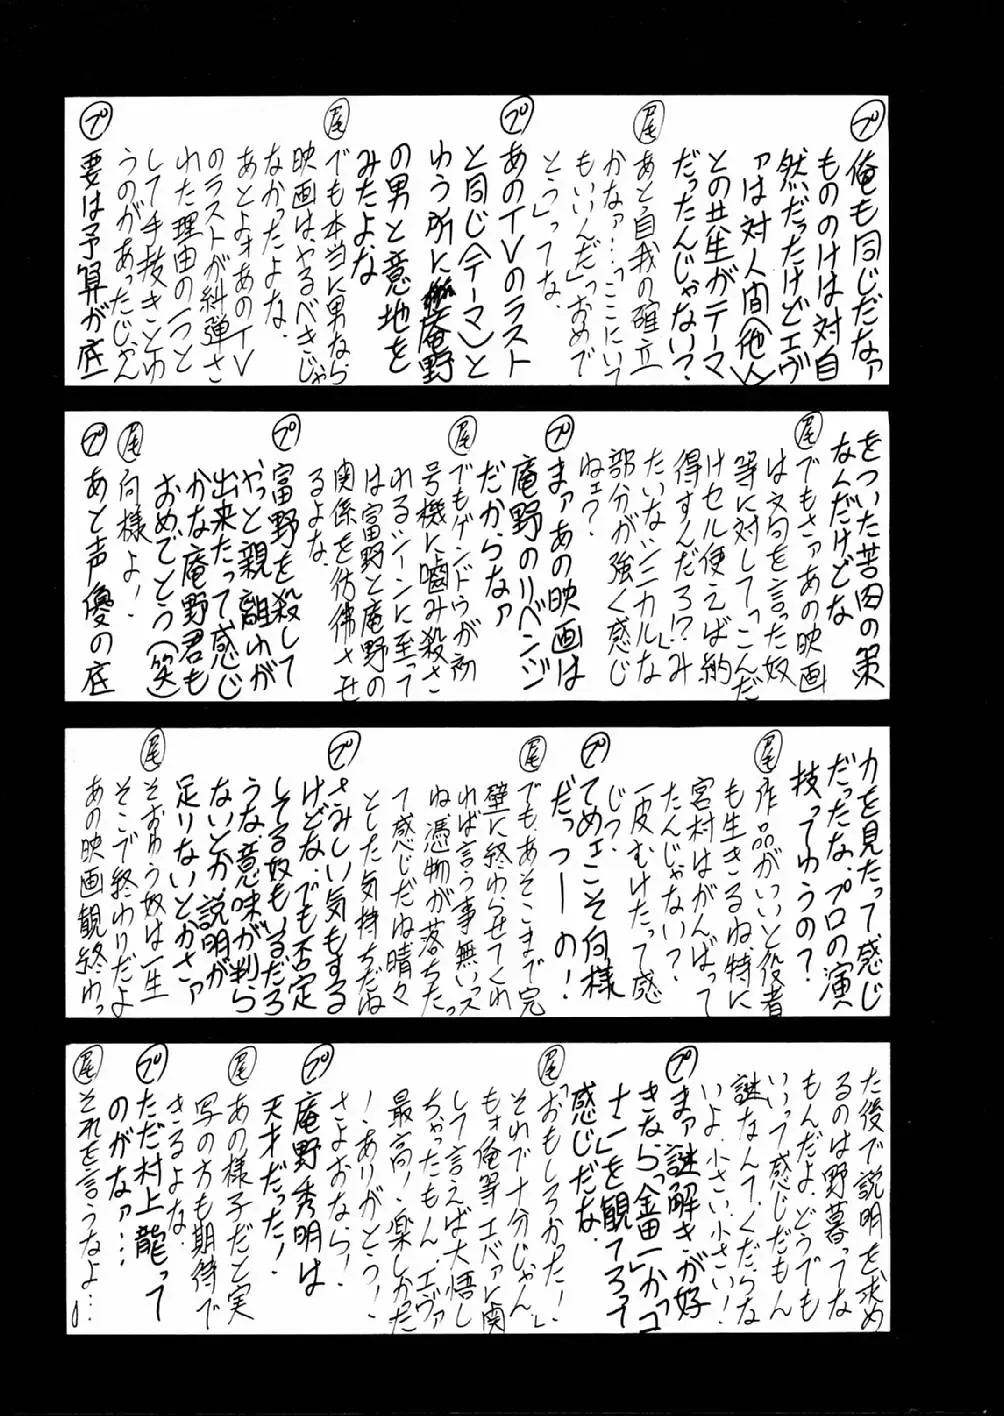 プ 俺も同じだなァ
もののけは対自
然だったけどエヴ
ァは対人間(他人)
との共生がテーマ
だったんじゃない?
尾 あと自我の確立
かなァ…「ここにいて
もいいんだ」「おめで
とう」ってな、
プ あのTVのラスト
と同じ〈テーマ〉と
ゆう所に庵野
の男と意地を
みたよな
尾 でも本当に男なら
映画は、やるべきじゃ
なかったよな、
あとよォあのTV
のラストが糾弾さ
れた理由の一つと
して手抜きとゆ
うのがあったじゃん
プ 要は予算が底
をついた苦肉の策
なんだけどな
尾 でもさァあの映画
は文句を言った奴
等に対して「こんだ
けセル使えば納
得すんだろ!?」み
たいなシニカルな
部分が強く感じ
ねェ?
プ まァあの映画は
庵野のリベンジ
だからなァ
尾 でもゲンドウが初
号機に噛み殺さ
れるシーンに至って
は富野と庵野の
関係を彷彿させ
るよな、
プ 富野を殺して
やっと親離れが
出来たって感じ
かな庵野君も
おめでとう(笑)
尾 何様よ!
プ あと声優の底
力を見たって感じ
だったな、プロの演
技ってゆうの?
尾 作品がいいと役者
も生きるね、特に
宮村はがんばって
たんじゃない?
一皮むけたって感
じ?、
プ てめェこそ何様
だっつーの!
尾 でも、あそこまで完
璧に終わらせてくれ
れば言う事無いっス
ね憑物が落ちたっ
て感じだね晴々
とした気持ちだね
プ さみしい気もする
けどな、でも否定
してる奴もいるだろ
うな、意味が判ら
ないとか、説明が
足りないとかさァ
尾 そおゆう奴は一生
そこで終わりだよ
あの映画観終わっ
た後で説明を求め
るのは野暮ってな
もんだよ、どうでも
いいって感じだもん
謎なんて、くだらな
いよ、小さい、小さい!
プ まァ謎解きが好
きなら「金田一」か「コ
ナン」を観てろって
感じだな、
尾 「おもしろかった!」
それで十分じゃん、
もォ俺等エバァに関
して言えば大悟し
ちゃったもん、エヴァ
最高!楽しかった
!ありがとう!
さよおなら?、
プ 庵野秀明は
天才だった!
尾 あの様子だと実
写の方も期待で
きるよな、
プ ただ村上龍って
のがなァ…
尾 それを言うなよ…